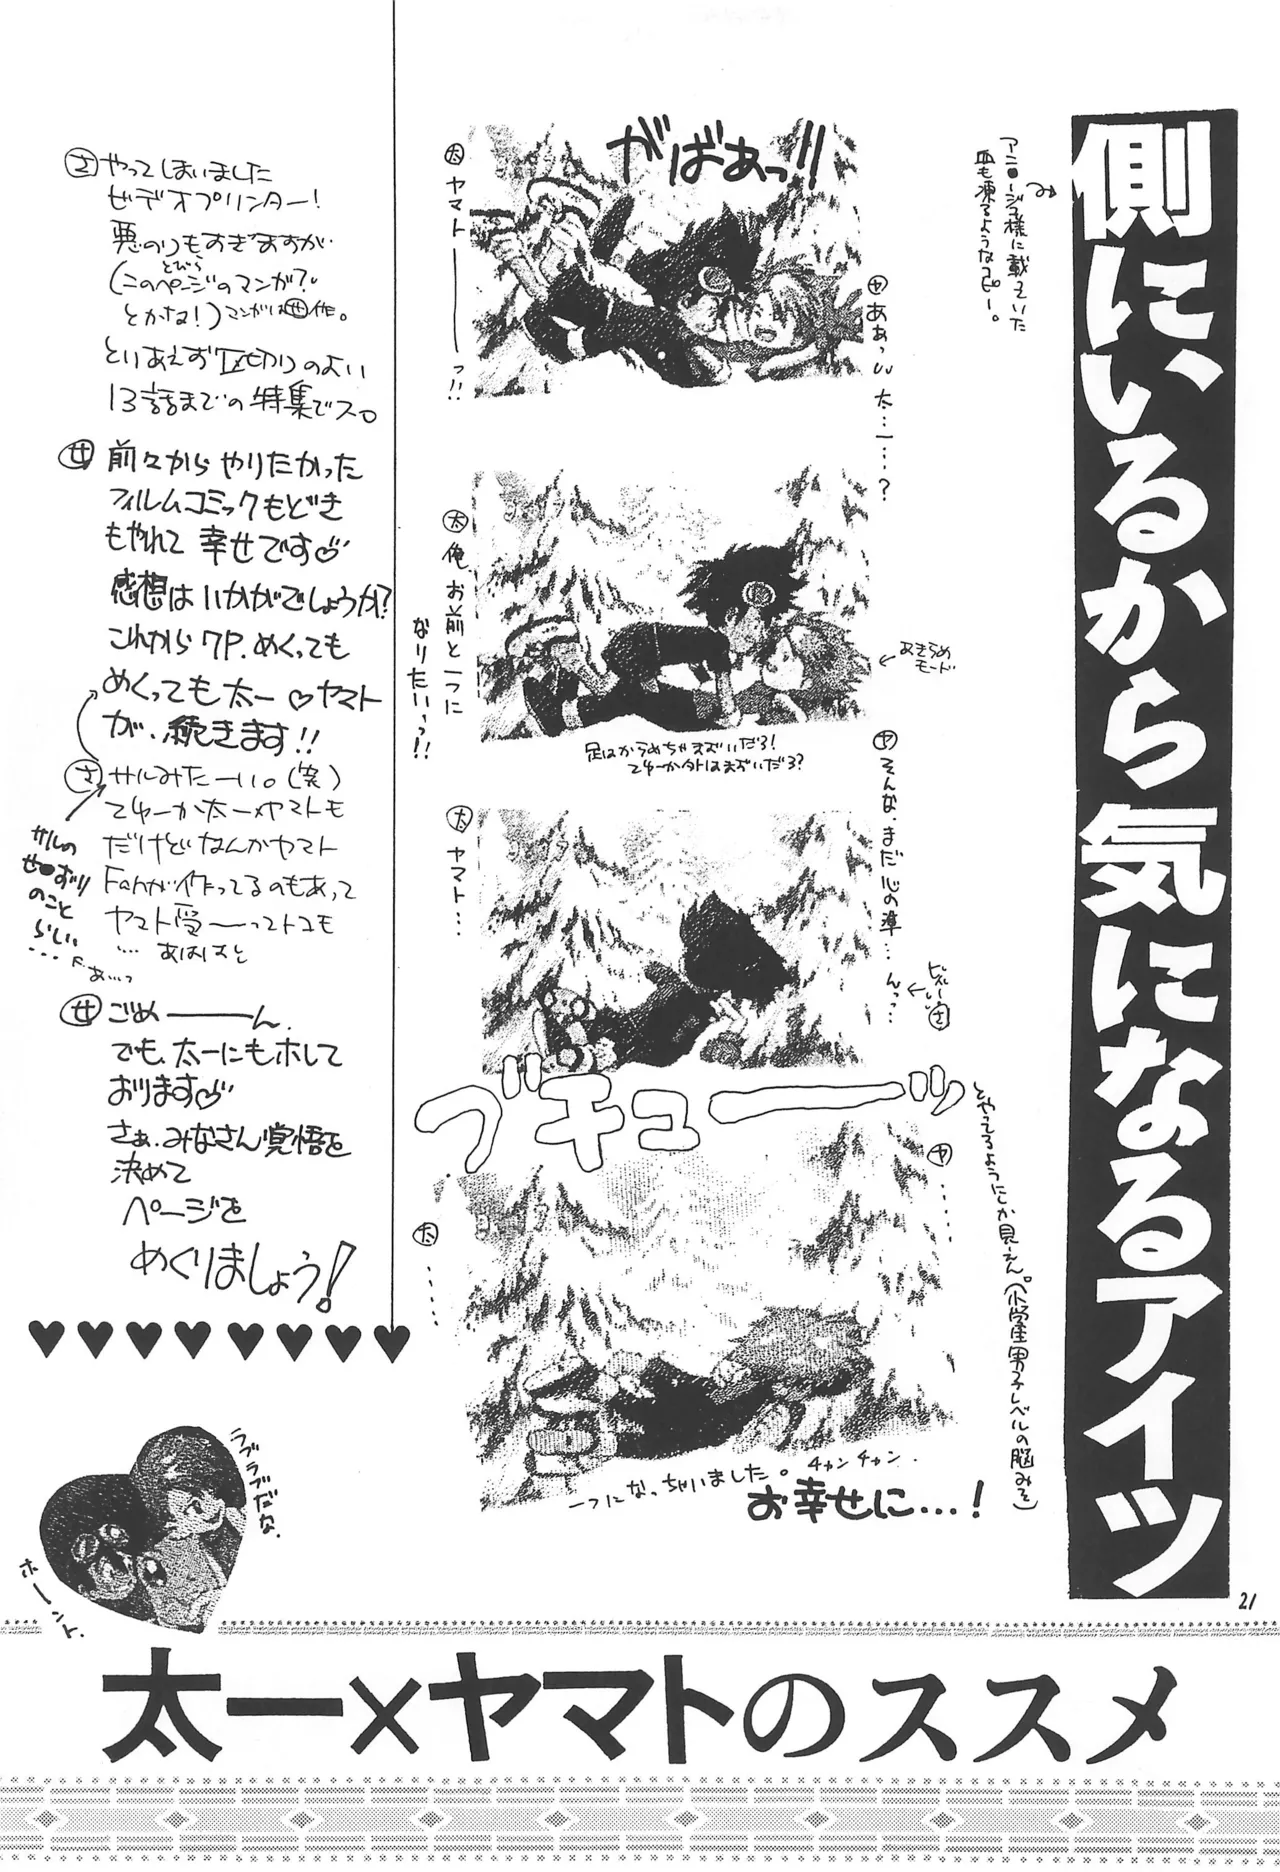 側にいるから気になるアイツ
21
アニ●ージュ様に載っていた
血も凍るようなコピー。
がばあっ!!
太 ヤマト――――っ!!
ヤ ああっ!! 太…一…?
太 俺、お前と一つに
なりたいっっ!!
あきらめ
モード
足はからめちゃマズいだろ!
てゆーか外はマズいだろ?
ヤ そんな、まだ心の準…んっっ…
太 ヤマト…
ブキューーッ
とやってるようにしか見えん(小学生男子レベルの脳みそ)
ヤ ‥‥‥
太 ‥‥‥
一つになっちゃいました。チャンチャン.
お幸せに…!
さ やってしまいました
ビデオプリンター!
悪のりもすぎますが
(このページのマンガ?
とびら
とかね!)マンガは世作。
とりあえず区切りのよい
13話までの特集でス。
せ 前々からやりたかった
フィルムコミックもどき
もやれて幸せです♡
感想はいかがでしょうか?
これから7P.めくっても
めくっても太一♡ヤマト
が、続きます!!
さ サルみたーい。(笑)
てゆーか太一×ヤマトも
だけどなんかヤマト
Fanが作ってるのもあって
ヤマト受――ってトコも
… あはは
サルの
せ●ずり
のこと
らしい…
せ ごめ――――ん.
でも、太一にもホして
おります♡
さぁ、みなさん覚悟を
決めて
ページを
めくりましょう!
♥♥♥♥♥♥♥♥
ラブラブだな.
ホーント.
太一×ヤマトのススメ